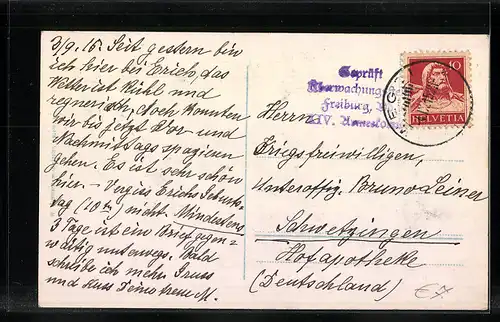 3/9. 15. Seit gestern bin
ich hier bei Erich, das
Wetter ist kühl und
regnerisch, doch konnten
wir bis jetzt Vor- und
Nachmittags spazieren
gehen. Es ist sehr schön
hier – Vergiss Erichs Geburts-
tag (10ten) nicht. Mindestens
3 Tage ist ein Brief gegen-
wärtig unterwegs. Bald
schreibe ich mehr. Gruss
und Kuss Deine treue M.
Geprüft
Überwachungs
Freiburg,
XIV. Armeekorps
10
HELVETIA
Herrn
Kriegsfreiwilligen,
Unteroffiz. Bruno Leiner
Schwetzingen
Hofapotheke
(Deutschland)
€7